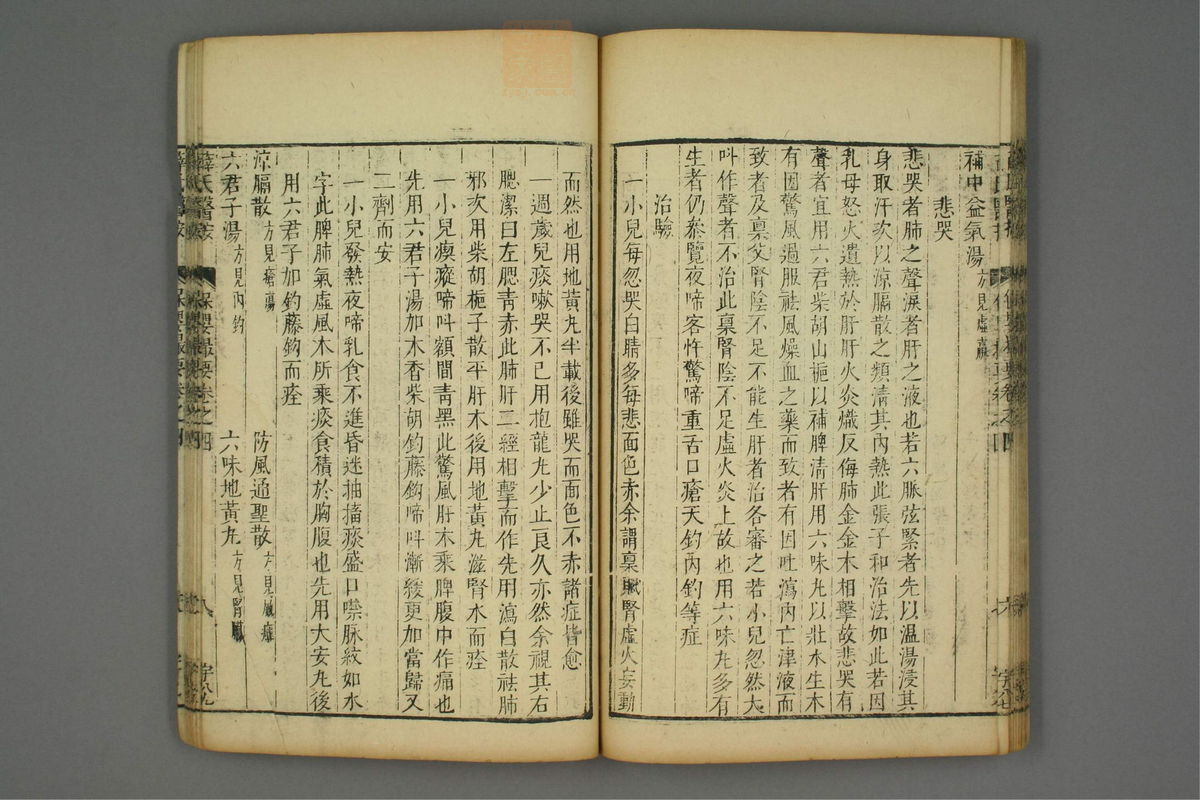 補中益氣湯方見虛羸
悲哭
悲哭者肺之聲淚者肝之液也若六脈弦緊者先以溫湯浸其
身取汗次以涼膈散之類清其內熱此張子和治法如此若因
乳母怒火遺熱於肝肝火炎熾反侮肺金金木相擊故悲哭有
聲者宜用六君柴胡山梔以補脾清肝用六味丸以壯水生木
有因驚風過服祛風燥血之藥而致者有因吐瀉內亡津液而
致者及稟父腎陰不足不能生肝者治各審之若小兒忽然大
呌作聲者不治此稟腎陰不足虛火炎上故也用六味丸多有
生者仍叅覽夜啼客忤驚啼重舌口瘡天釣內釣等症
治驗
一小兒每忽哭白睛多每悲面色赤余謂稟賦腎虛火妄動
而然也用地黃丸半載後雖哭而面色不赤諸症皆愈
一週歲兒痰嗽哭不已用抱龍丸少止良久亦然余視其右
腮潔白左腮靑赤此肺肝二經相擊而作先用瀉白散祛肺
邪次用柴胡梔子散平肝木後用地黃丸滋腎水而痊
一小兒瘈瘲啼呌額間靑黑此驚風肝木乘脾腹中作痛也
先用六君子湯加木香柴胡釣藤鈎啼呌漸緩更加當歸又
二劑而安
一小兒發熱夜啼乳食不進昏迷抽搐痰盛口噤脈紋如水
字此脾肺氣虛風木所乘痰食積於胸腹也先用大安丸後
用六君子加釣藤鈎而痊
涼膈散方見瘡瘍 防風通聖散方見風癱
六君子湯方見內釣 六味地黃丸方見腎臟
薛氏醫按 保嬰撮要卷之四 八